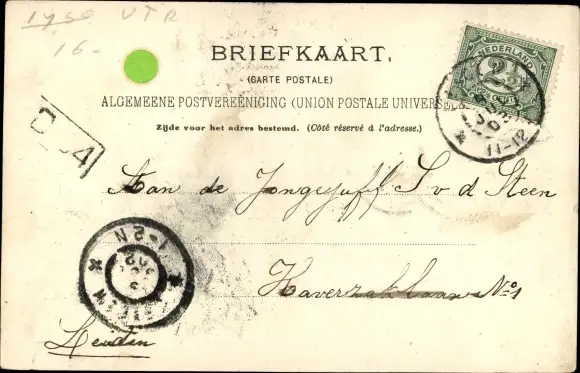 1450 UTR
16-
BRIEFKAART.
(CARTE POSTALE)
ALGEMEENE POSTVEREENIGING (UNION POSTALE UNIVERSELLE)
Zijde voor het adres bestemd. (Côté réservé à l'adresse.)
NEDERLAND
2½
11-12
4
Aan de Jongejuff S v d Steen
1-2N
Haverzaklaan No 1
Leiden